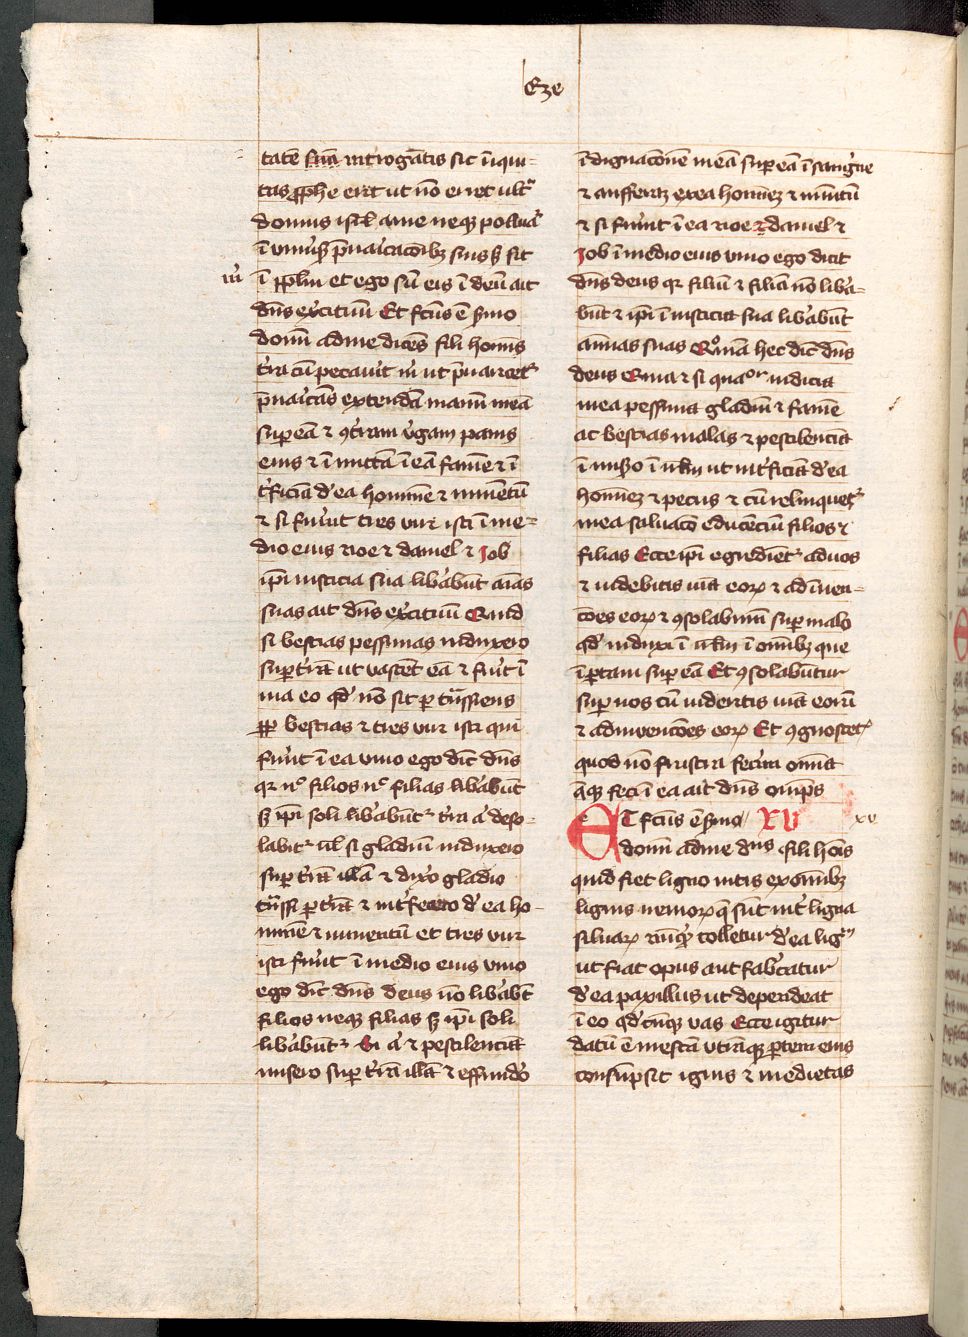 Eze
tatē suā interrogātis sic īiqui-
tas ꝓphe erit ut nō erret ultᵃ
domus isrl̄ a me neqꝫ polluaᵗ
ī uniūsis p̄uaricacōibꝫ suis sꝫ sit
m̄
ī ppl̄m et ego sū eis ī deū ait
dn̄s exercituū Et fcūs ē s̄mo
domī ad me dicēs fili homis
t̄ra cū peccauīt m̄ ut p̄uaricetᷣ
p̄uaricās extendā manū meā
suꝑ eā ⁊ ꝯteram v̄gam panis
eius ⁊ īmittā ī eā famē ⁊ ī
t̄ficiā d̄ ea hominē ⁊ iumētū
⁊ si fuīnt tres viri isti ī me-
dio eius noe ⁊ daniel ⁊ Job
ip̄i iusticia sua lib̄abunt aīas
suas ait dn̄s exercituū Quid
si bestias pessimas induxero
suꝑ t̄rā ut vastēt eā ⁊ fuīt ī
uia eo qd̄ nō sit ꝑ trāsiens
ꝓp̄ bestias ⁊ tres viri isti qui
fuīnt ī ea vivo ego dic̄ dn̄s
qꝛ nᶜ filios nᶜ filias lib̄abūt
sꝫ ip̄i soli lib̄abūntᷣ t̄ra āt deso-
labitᷣ ul̄ si gladiū induxero
suꝑ t̄rā illā ⁊ dix̄o gladio
trāsi ꝑ t̄rā ⁊ int̄fecero d̄ ea ho-
minē ⁊ iumentū et tres viri
isti fuīnt ī medio eius vivo
ego dic̄ dn̄s deus nō lib̄abūt
filios neqꝫ filias sꝫ ip̄i soli
lib̄abūntᷣ Si āt ⁊ pestilenciā
misero suꝑ t̄rā illā ⁊ effund̄o
īdignacōnē meā suꝑ eā ī sang̅ne
⁊ aufferā ex ea hoīez ⁊ iumētū
⁊ si fuīnt ī ea noe ⁊ daniel ⁊
Job ī medio eius vivo ego dicit
dn̄s deus qꝛ filiū ⁊ filiā nō lib̄a-
būt ⁊ ip̄i ī iusticia sua lib̄abūt
animas suas Qm̄ hec dic̄ dn̄s
deus Qm̄ ⁊ si quatᵒʳ iudicia
mea pessima gladiū ⁊ famē
ac bestias malas ⁊ pestilenciā
ī miss̄o ī irl̄m ut int̄ficiā d̄ ea
hoīez ⁊ pecus ⁊ tū relinquetᷣ
in ea saluaco educenciū filios ⁊
filias Ecce ip̄i egredientᷣ ad uos
⁊ uidebitis uiā eoꝝ ⁊ ad īuen-
cōes eoꝝ ⁊ ꝯsolabimī suꝑ malo
qd̄ induxi ī irl̄m ī oīibꝫ que
īportaui suꝑ eā Et ꝯsolabūtur
suꝑ uos cū uideritis uiā eorū
⁊ adinuencōes eoꝝ Et ꝯgnoscetᷣ
quod nō frustra fecerī omīa
q̄cūqꝫ feci ī ea ait dn̄s omp̄s
ET fcūs ē s̄mo XV
xv
domī ad me dn̄s fili hōis
quid fiet ligno vitis ex oīnibꝫ
lignis nemoꝝ q̄ sūt int̄ ligna
siluaꝝ nūqd̄ tolletur d̄ ea lignᵐ
ut fiat opus aut fabricatur
d̄ ea paxillus ut dependeat
ī eo qd̄cūqꝫ vas Ecce igitur
datū ē in escā vtrāqꝫ partem eius
consūpsit ignis ⁊ medietas